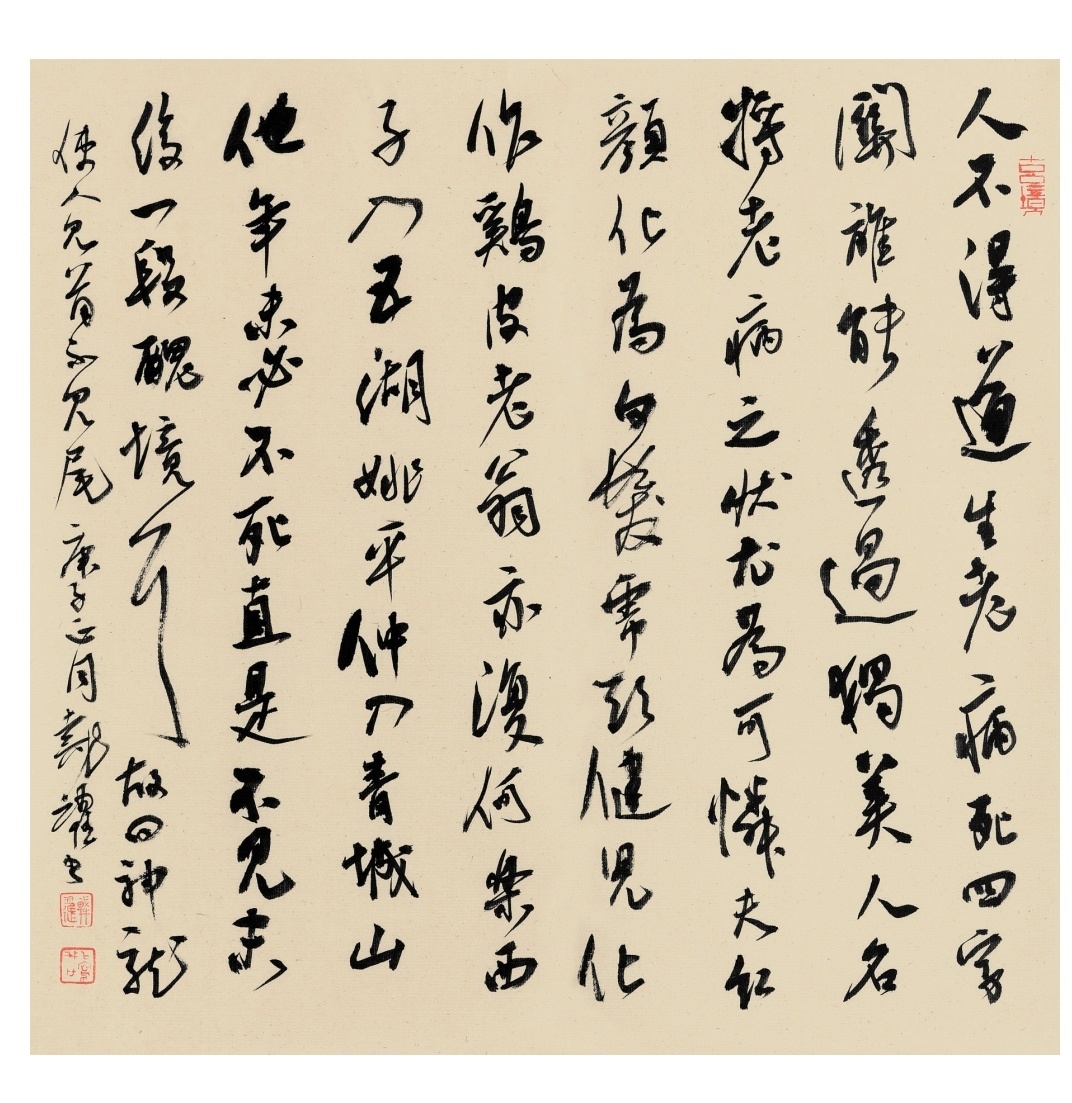 人不得道生老病死四字
關誰能透過獨美人名
將老病之狀尤為可憐夫紅
顏化為白髮虎頭健兒化
作鷄皮老翁亦復何樂西
子入五湖姚平仲入青城山
他年未必不死直是不見末
後一段醜境耳故曰神龍
使人見首不見尾庚子正月書